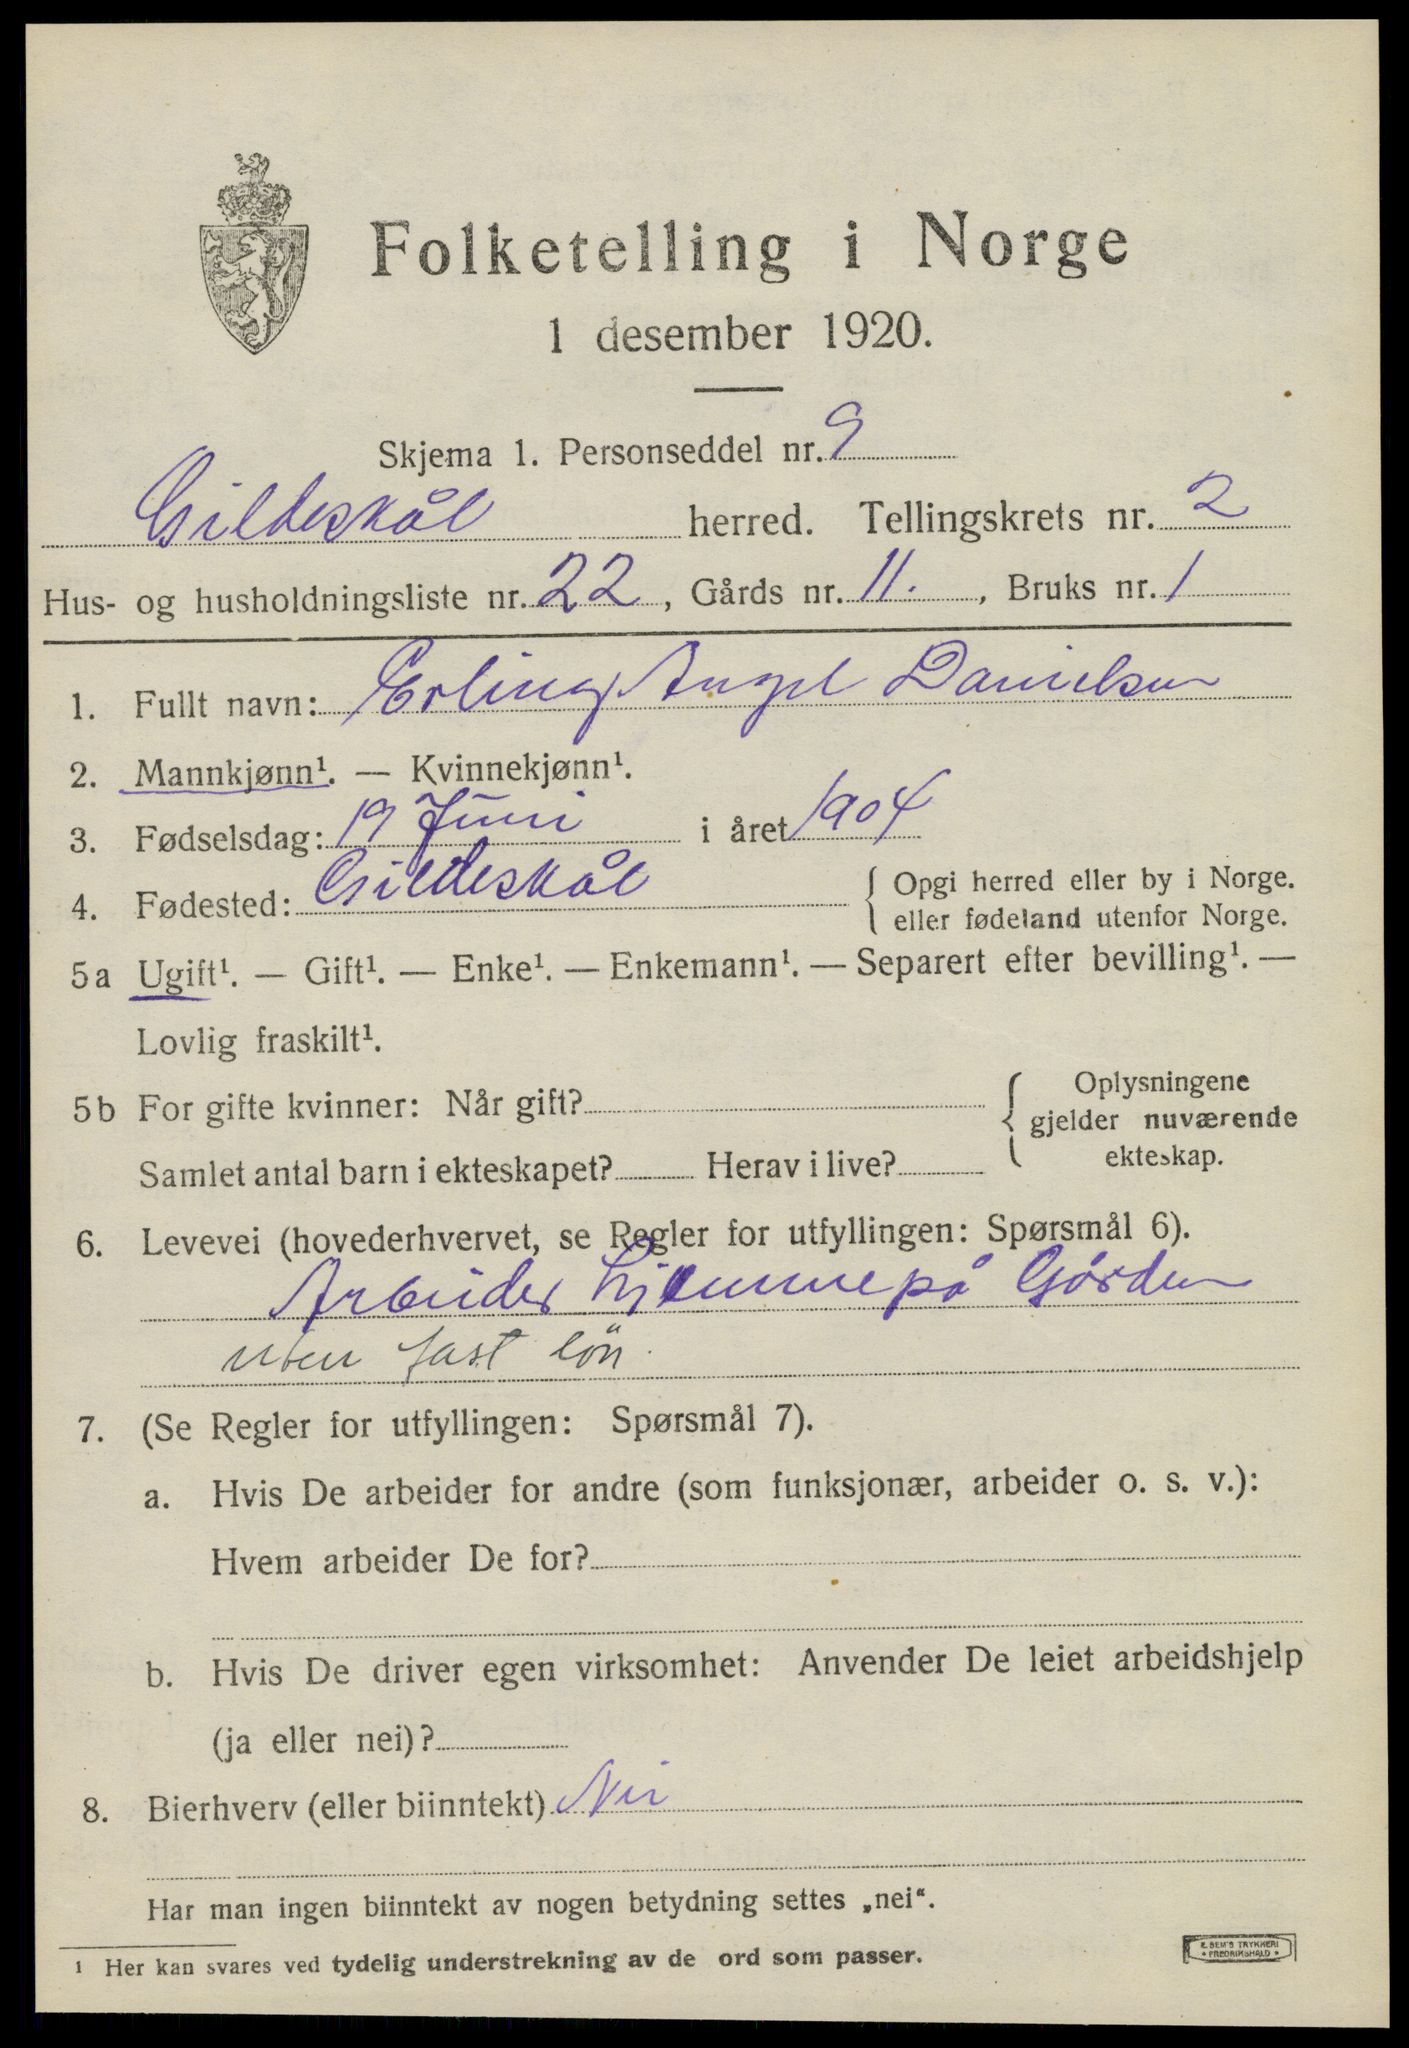 Folketelling i Norge
1 desember 1920.
Skjema 1. Personseddel nr. 9
Gildeskål herred. Tellingskrets nr. 2
Hus- og husholdningsliste nr. 22, Gårds nr. 11., Bruks nr. 1
1. Fullt navn: Erling Angel Danielsen
2. Mannkjønn¹. — Kvinnekjønn¹.
3. Fødselsdag: 19 Juni i året 1904
4. Fødested: Gildeskål { Opgi herred eller by i Norge.
eller fødeland utenfor Norge.
5a Ugift¹. — Gift¹. — Enke¹. — Enkemann¹. — Separert efter bevilling¹. —
Lovlig fraskilt¹.
5b For gifte kvinner: Når gift? { Oplysningene
gjelder nuværende
ekteskap.
Samlet antal barn i ekteskapet? Herav i live?
6. Levevei (hovederhvervet, se Regler for utfyllingen: Spørsmål 6).
Arbeider hjemme på Gården
uten fast lön.
7. (Se Regler for utfyllingen: Spørsmål 7).
a. Hvis De arbeider for andre (som funksjonær, arbeider o. s. v.):
Hvem arbeider De for?
b. Hvis De driver egen virksomhet: Anvender De leiet arbeidshjelp
(ja eller nei)?
8. Bierhverv (eller biinntekt) Nei
Har man ingen biinntekt av nogen betydning settes „nei“.
¹ Her kan svares ved tydelig understrekning av de ord som passer.
E. SEM'S TRYKKERI
• FREDRIKSHALD •